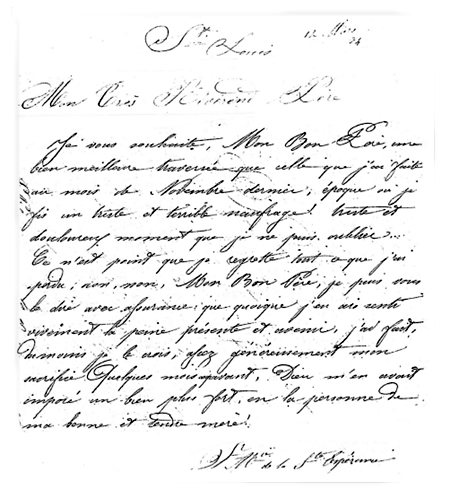 St Louis 12 Mars 74
Mon Très Révérend Père
Je vous souhaite, Mon Bon Père, une
bien meilleure traversée que celle que j'ai faite
au mois de Novembre dernier; époque où je
fis un triste et terrible naufrage! triste et
douloureux moment que je ne puis oublier...
Ce n'est point que je regrette tout ce que j'ai
perdu; non, non, Mon Bon Père, je puis vous
le dire avec assurance; que quoique j'en ais senti
vivement la peine présente et avenir, j'ai fait,
du moins je le crois, assez généreusement mon
sacrifice. Quelques mois avant, Dieu m'en avait
imposé un bien plus fort, en la personne de
ma bonne et tendre mère!
Sr Mie de la Ste Espérance